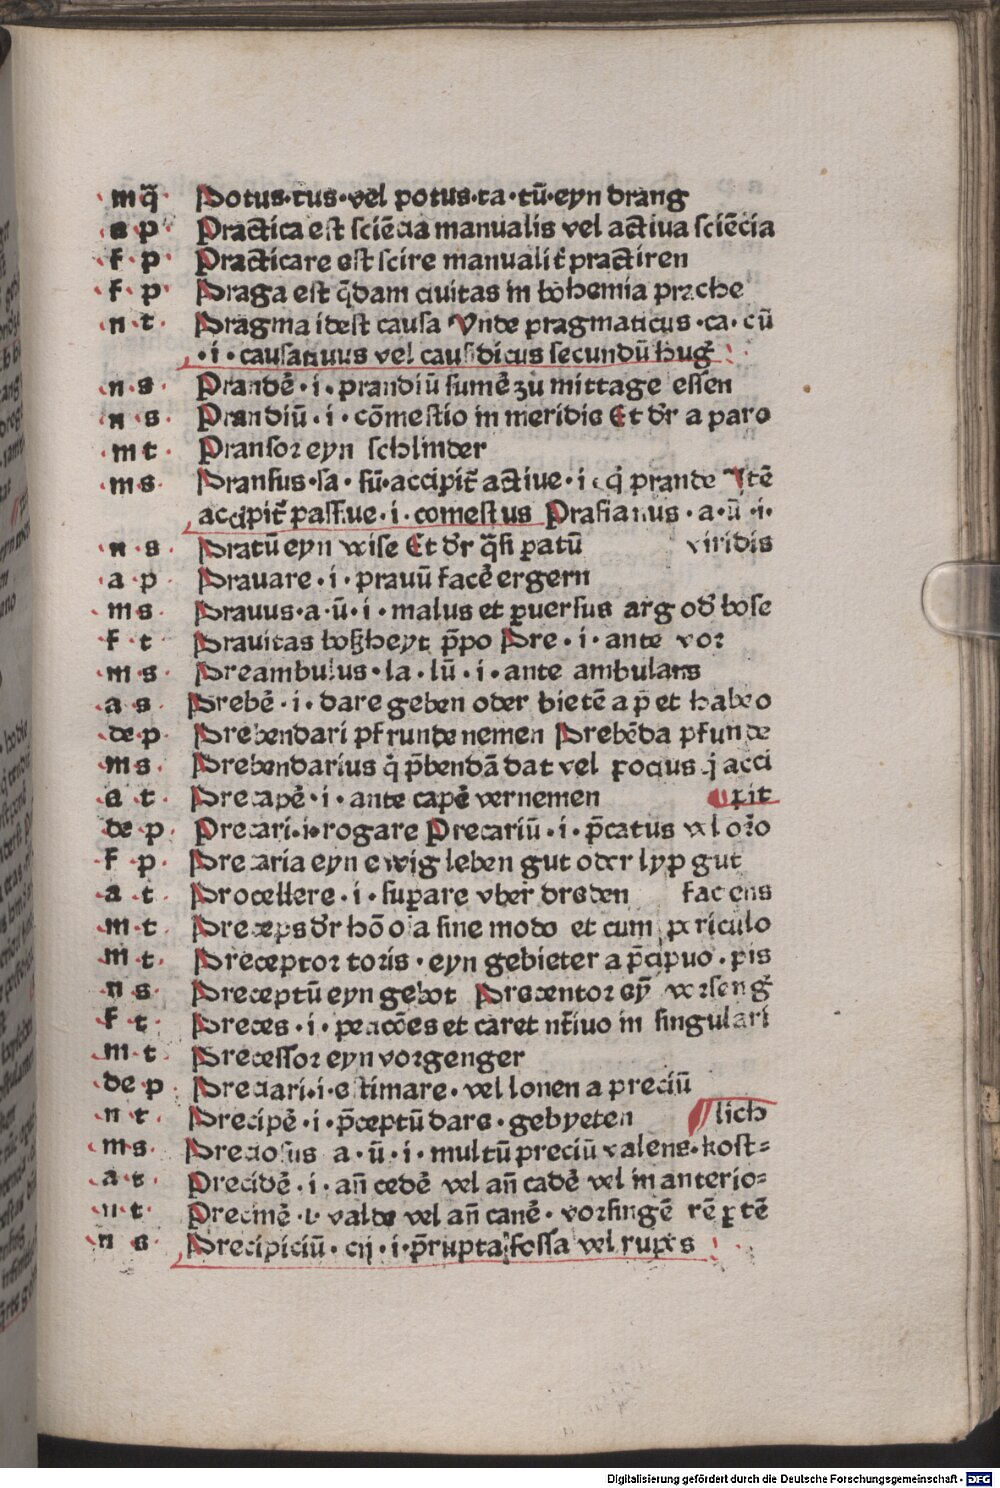 m q̃ Potus·tus·vel potus·ta·tū·eyn drang
a p Practica est sciēcia manualis vel actiua sciēcia
f p Practicare est scire manualit̄ practiren
f p Praga est q̄dam ciuitas in bohemia prache
n t Pragma idest causa Vnde pragmaticus·ca·cū
·i·causatiuus vel causidicus secundū hug̃
n s Prandē·i·prandiū sumē zů mittage essen
n s Prandiū·i·cōmestio in meridie Et dr̄ a paro
m t Pransor eyn schlinder
m s Pransus·sa·sū·accipit̄ actiue·i·q̇ prande Itē
accipit̄ passiue·i·comestus Prasianus·a·ū·i·
n s Pratū eyn wise Et dr̄ q̄si ꝑatū viridis
a p Prauare·i·prauū facē ergern
m s Prauus·a·ū·i·malus et ꝑuersus arg od̄ bose
f t Prauitas boßheyt p̄po Pre·i·ante vor
m s Preambulus·la·lū·i·ante ambulans
a s Prebē·i·dare geben oder bietē a p̄ et habeo
de p Prebendari pfrunde nemen Prebēda pfunde
m s Prebendarius q̇ p̄bendā dat vel socius q̇ acci
a t Precapē·i·ante capē vernemen pit
de p Precari·i·rogare Precariū·i·p̄catus vel or̄o
f p Precaria eyn ewig leben gut oder lyp gut
a t Procellere·i·suꝑare vber dreden faciens
m t Preceps dr̄ hō oīa sine modo et cum periculo
m t Preceptor toris·eyn gebieter a p̄cipuo·pis
n s Preceptū eyn gebot Precentor eȳ vorseng̃
f t Preces·i·peticōes et caret nt̄iuo in singulari
m t Precessor eyn vorgenger
de p Preciari·i·estimare·vel lonen a preciū
n t Precipē·i·p̄ceptū dare·gebyeten lich
m s Preciosus a·ū·i·multū preciū valens·kost=
a t Precidē·i·an̄ cedē vel an̄ cadē vel in anterio=
n t Precinē·i·valde vel an̄ canē·vorsingē rē ꝑtē
n s Precipiciū·cij·i·p̄rupta fossa vel rupes
Digitalisierung gefördert durch die Deutsche Forschungsgemeinschaft - DFG